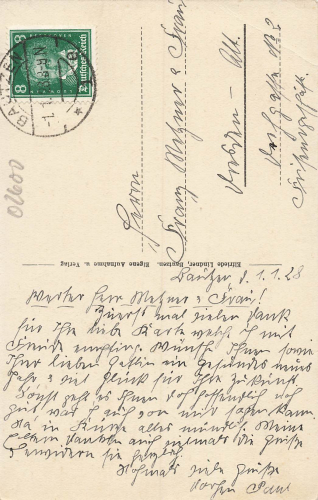 8 Deutsches Reich 8
BAUTZEN
02600
Herrn
Franz Metzner & Frau
Dresden - Alt.
Elfriede Lindner, Bautzen. Eigene Aufnahme u. Verlag
Bautzen d. 1.1.28
Werter Herr Metzner & Frau!
Zuerst mal vielen Dank
für Ihre liebe Karte welch ich mit
Freude empfing. Wünsche Ihnen sowie
Ihrer lieben Gattin ein Gesundes neues
Jahr & viel Glück für Ihre Zukunft.
Sonst geht es Ihnen doch hoffentlich noch
gut was ich auch von mir sagen kann.
Na in Kürze alles mündl. Meine
Eltern danken auch vielmals die Grüße
& erwidern sie herzlich.
Nochmals viele Grüße
Paul